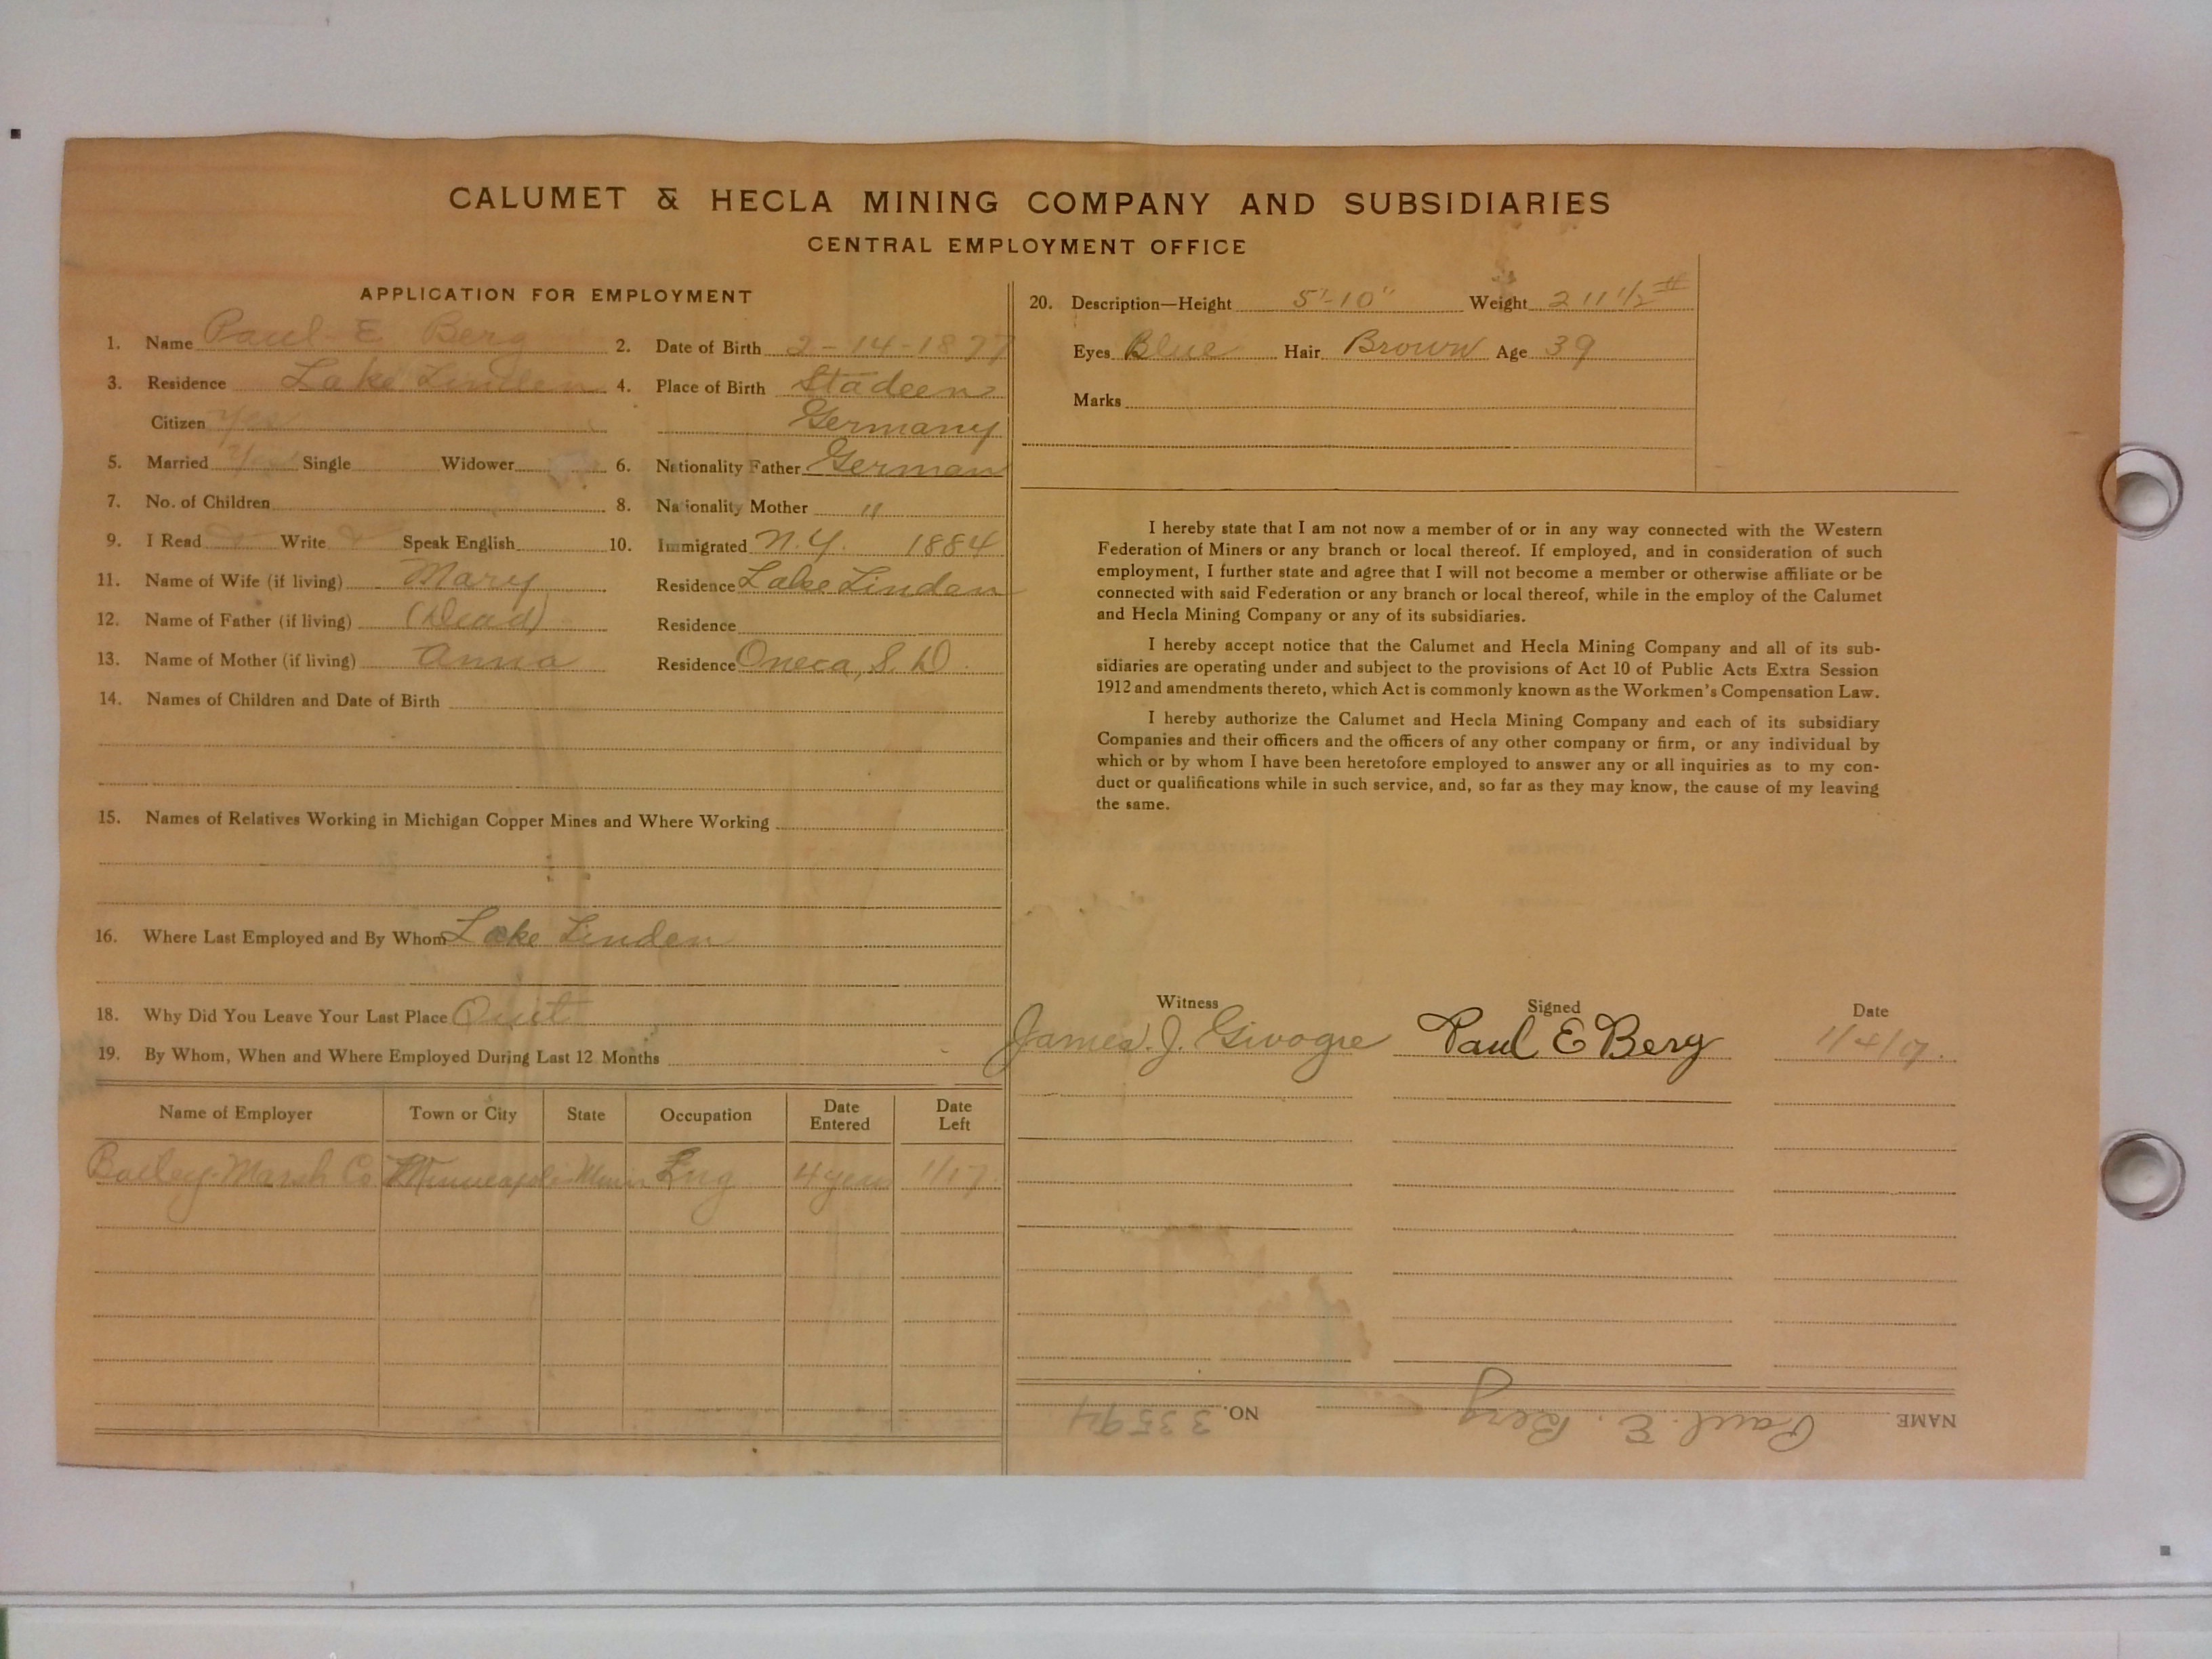 CALUMET & HECLA MINING COMPANY AND SUBSIDIARIES
CENTRAL EMPLOYMENT OFFICE
APPLICATION FOR EMPLOYMENT
1. Name Paul E Berg 2. Date of Birth 2-14-1877
3. Residence Lake Linden 4. Place of Birth Stadeen
Citizen Yes Germany
5. Married Yes Single Widower 6. Nationality Father German
7. No. of Children 8. Nationality Mother "
9. I Read Write Speak English 10. Immigrated N.Y. 1884
11. Name of Wife (if living) Mary Residence Lake Linden
12. Name of Father (if living) (Dead) Residence
13. Name of Mother (if living) Anna Residence Oneca, S. D.
14. Names of Children and Date of Birth
15. Names of Relatives Working in Michigan Copper Mines and Where Working
16. Where Last Employed and By Whom Lake Linden
18. Why Did You Leave Your Last Place Quit
19. By Whom, When and Where Employed During Last 12 Months
Name of Employer Town or City State Occupation Date Entered Date Left
Bailey-Marsh Co Minneapolis Minn Eng 4 years 1/17
20. Description—Height 5'-10" Weight 211 1/2 #
Eyes Blue Hair Brown Age 39
Marks
I hereby state that I am not now a member of or in any way connected with the Western
Federation of Miners or any branch or local thereof. If employed, and in consideration of such
employment, I further state and agree that I will not become a member or otherwise affiliate or be
connected with said Federation or any branch or local thereof, while in the employ of the Calumet
and Hecla Mining Company or any of its subsidiaries.
I hereby accept notice that the Calumet and Hecla Mining Company and all of its sub-
sidiaries are operating under and subject to the provisions of Act 10 of Public Acts Extra Session
1912 and amendments thereto, which Act is commonly known as the Workmen's Compensation Law.
I hereby authorize the Calumet and Hecla Mining Company and each of its subsidiary
Companies and their officers and the officers of any other company or firm, or any individual by
which or by whom I have been heretofore employed to answer any or all inquiries as to my con-
duct or qualifications while in such service, and, so far as they may know, the cause of my leaving
the same.
Witness Signed Date
James. J. Givogre Paul E Berg 1/4/17.
NAME Paul. E. Berg NO. 33594